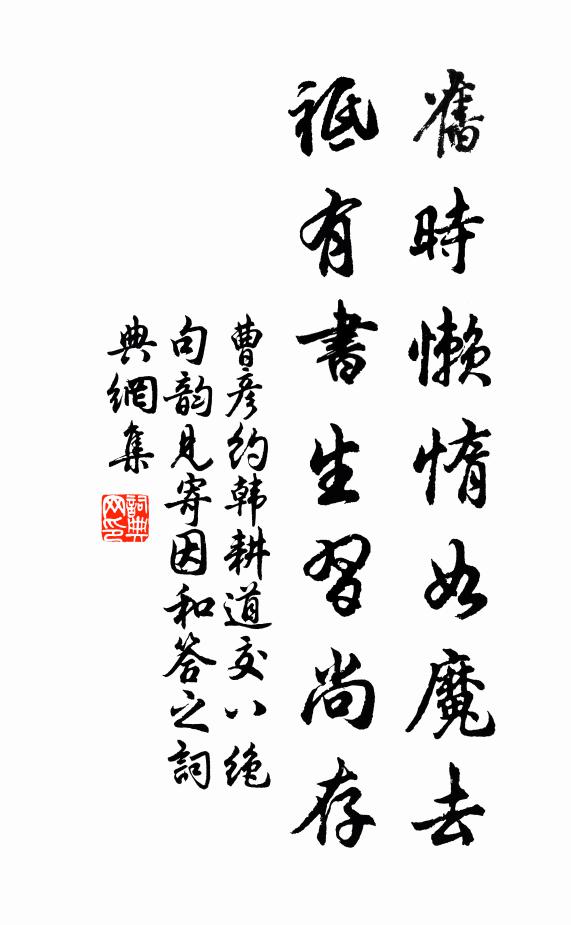 舊時懶惰如魔去
祗有書生習尚存
曹彥約韓耕道交八绝
句韵見寄因和答之詞
典網集
詞典网印